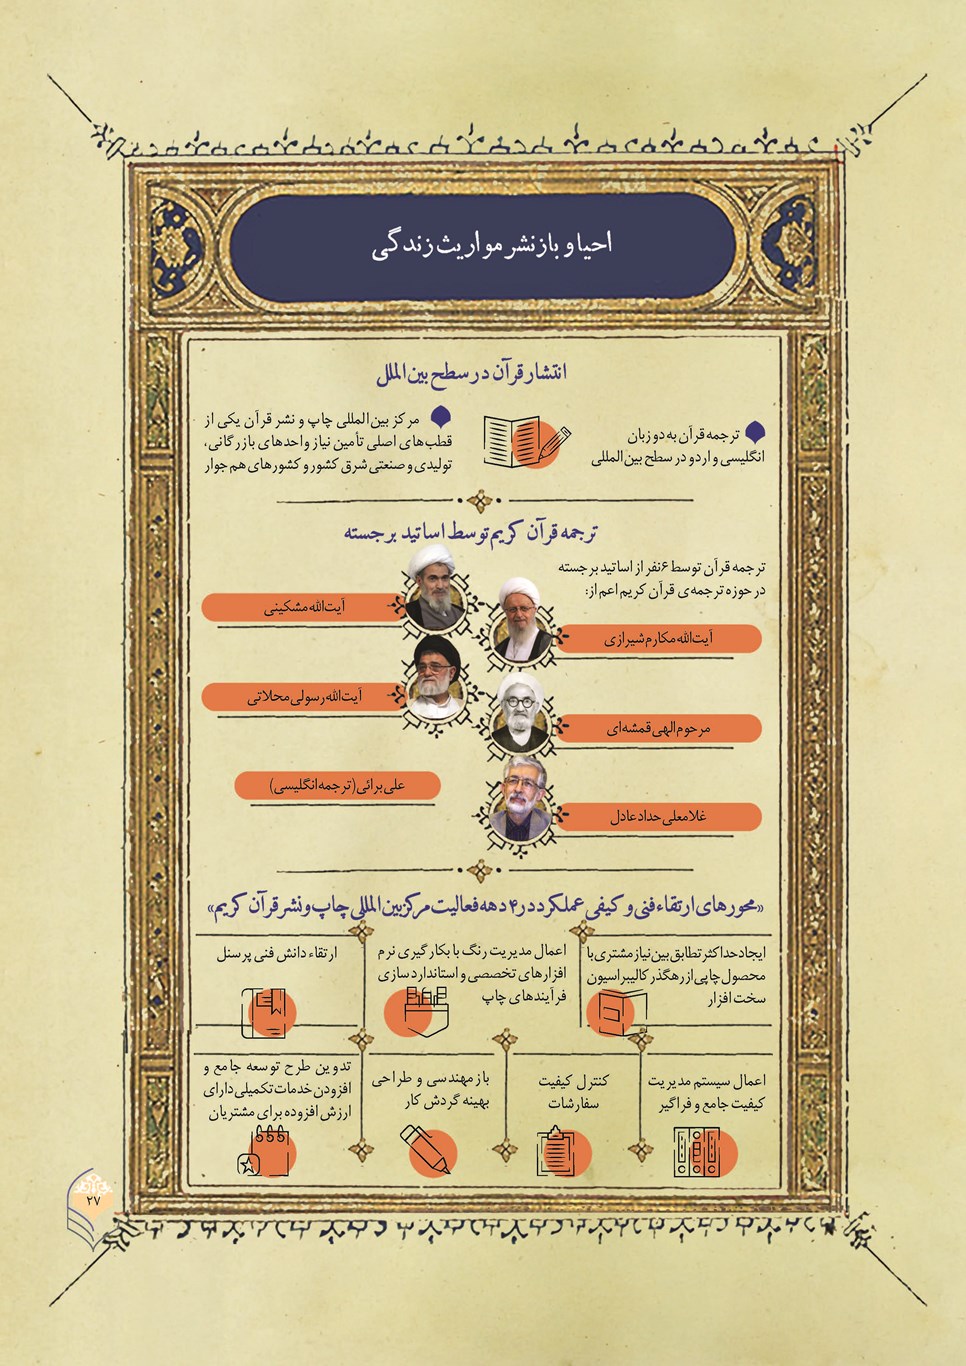 احیا و باز نشر مواریث زندگی
انتشار قرآن در سطح بین الملل
ترجمه قرآن به دو زبان
انگلیسی و اردو در سطح بین‌المللی
مرکز بین‌المللی چاپ و نشر قرآن یکی از
قطب‌های اصلی تأمین نیاز واحدهای بازرگانی،
تولیدی و صنعتی شرق کشور و کشورهای هم جوار
ترجمه قرآن کریم توسط اساتید برجسته
ترجمه قرآن توسط ۶ نفر از اساتید برجسته
در حوزه ترجمه‌ی قرآن کریم اعم از:
آیت‌الله مشکینی
آیت‌الله مکارم شیرازی
آیت‌الله رسولی محلاتی
مرحوم الهی قمشه‌ای
علی برائی (ترجمه انگلیسی)
غلامعلی حداد عادل
«محورهای ارتقاء فنی و کیفی عملکرد در ۴ دهه فعالیت مرکز بین المللی چاپ و نشر قرآن کریم»
ایجاد حداکثر تطابق بین نیاز مشتری با
محصول چاپی از رهگذر کالیبراسیون
سخت افزار
اعمال مدیریت رنگ با بکارگیری نرم
افزارهای تخصصی و استانداردسازی
فرآیندهای چاپ
ارتقاء دانش فنی پرسنل
اعمال سیستم مدیریت
کیفیت جامع و فراگیر
کنترل کیفیت
سفارشات
باز مهندسی و طراحی
بهینه گردش کار
تدوین طرح توسعه جامع و
افزودن خدمات تکمیلی دارای
ارزش افزوده برای مشتریان
۲۷